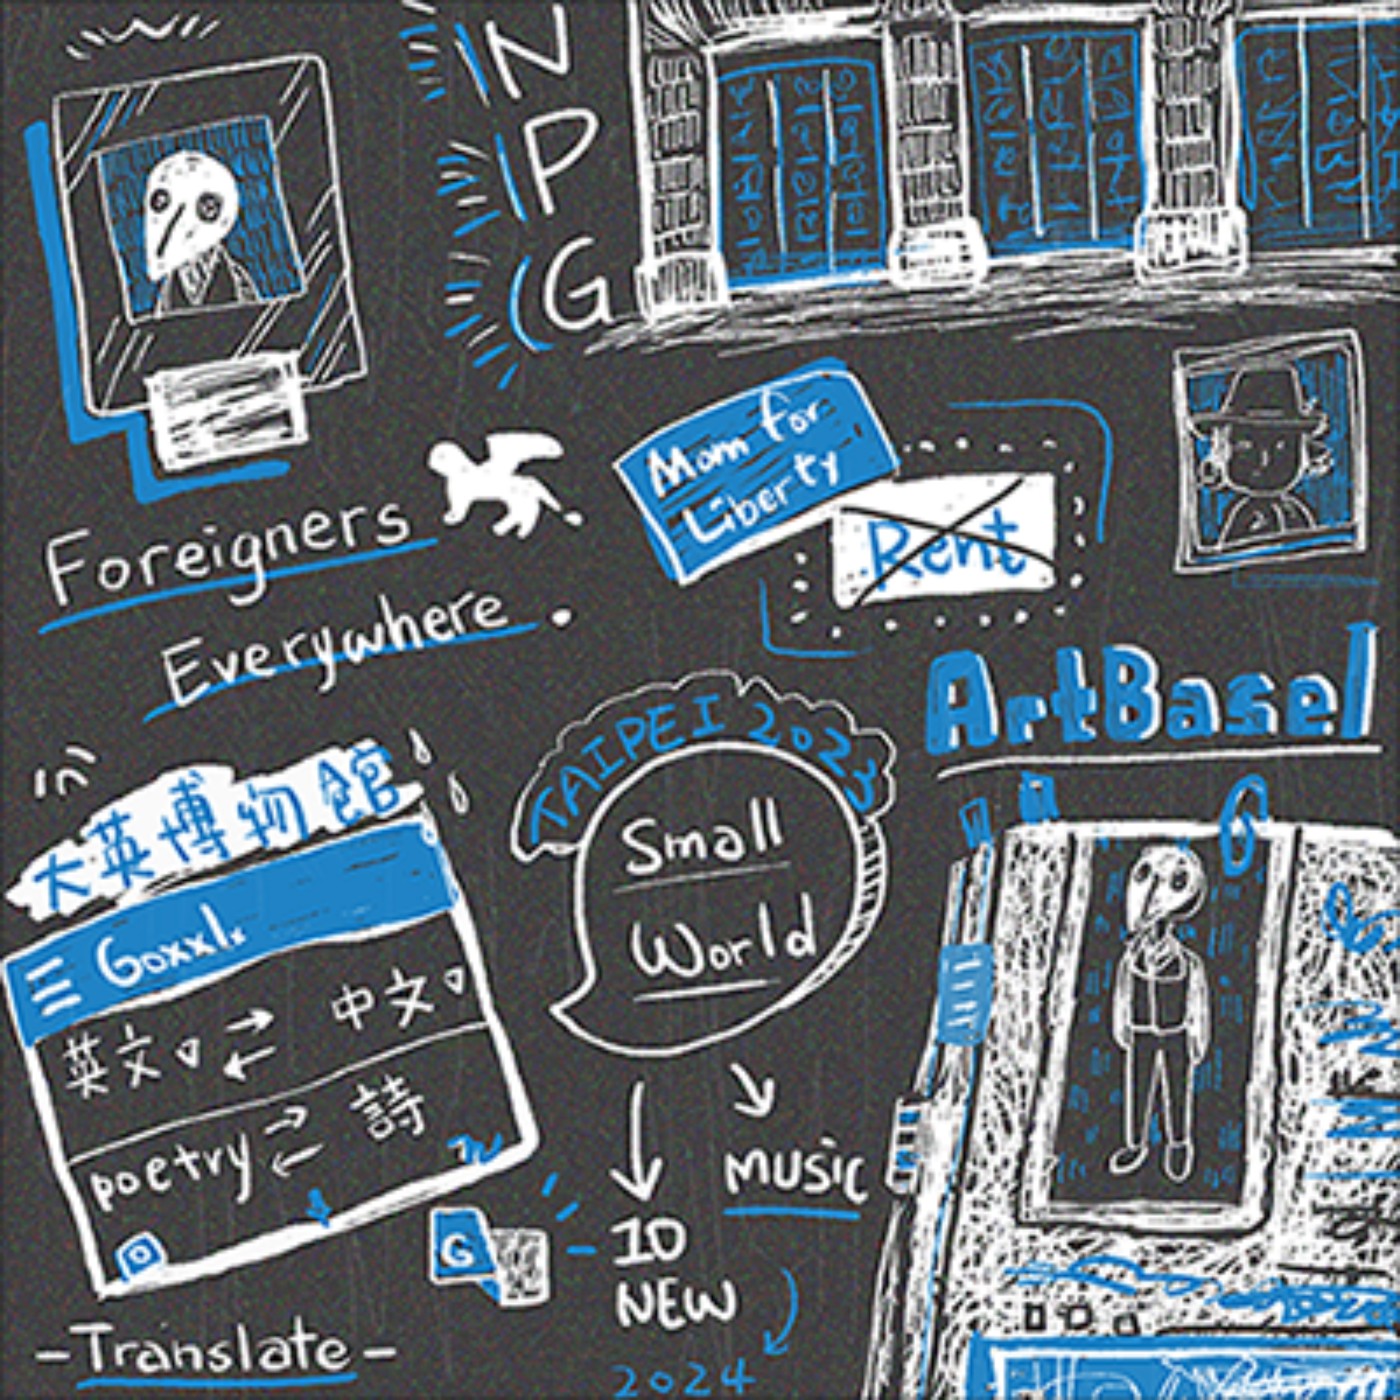 N
P
G
Mom for
Liberty
Rent
Foreigners
Everywhere.
ArtBasel
TAIPEI 2023
Small
World
大英博物館
Goxxlx
英文 中文
poetry 詩
G
music
10
NEW
2024
-Translate-